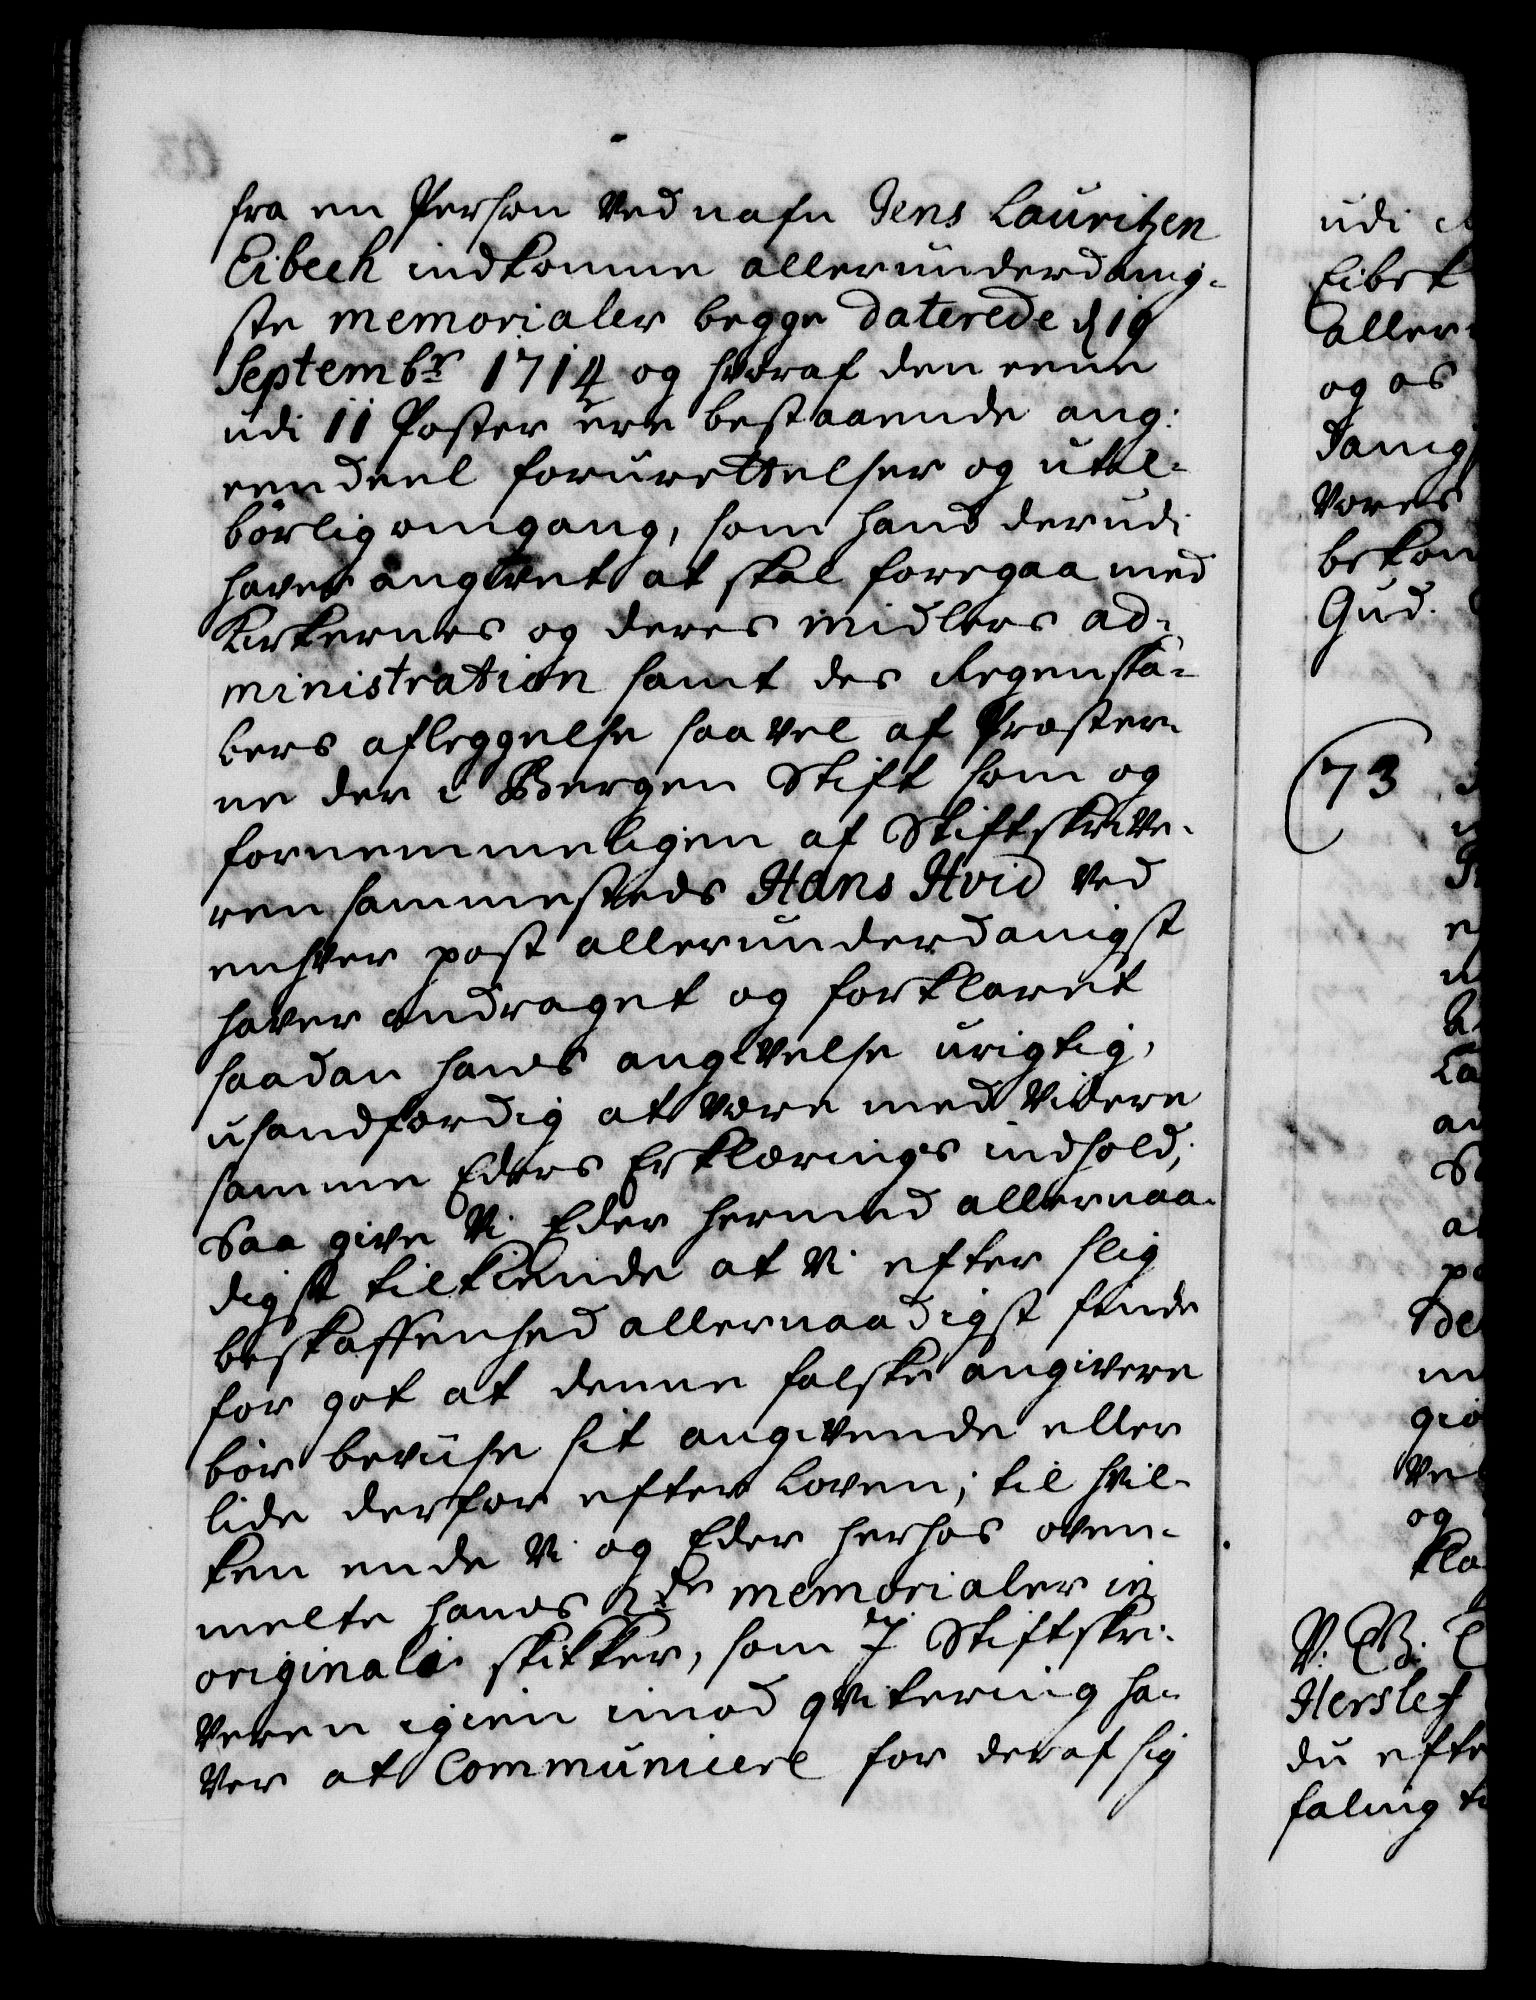 fra en Persohn ved nafn Jens Lauritzen
Eibech indkomne allerunderdanig-
ste memorialer begge daterede d 19
Septembr 1714 og hvoraf den eene
udi 11 Poster ere bestaaende ang:
eendeel forurettelser og util-
börlig omgang, som hand derudi
haver angivet at skal foregaa med
Kirkernes og deres midlers ad-
ministration samt des Regenska-
bers afleggelse saavel af Præster-
ne der i Bergen Stift som og
fornemmeligen af Stiftskrive-
ren sammesteds Hans Hvid ved
enhver post allerunderdanigst
haver andraget og forklaret
saadan hans angivelse urigtig,
usandfærdig at være med videre
samme Eders Erklærings indhold;
Saa give Vi Eder hermed allernaa-
digst tilkiende at Vi efter slig
beskaffenhed allernaadigst finde
for got at denne falske angivere
bör beviise sit angivende eller
lide derfor efter Loven; til hvil-
ken ende Vi og Eder herhos oven-
melte hans 2de memorialer in
originali skikker, som I Stiftskri-
veren igien imod qvitering ha-
ver at Communicere for deraf sig
udi
Eibek
aller
og os
danig
Vores
bekom
Gud.
73
V. G. B.
Herslef
du efter
faling